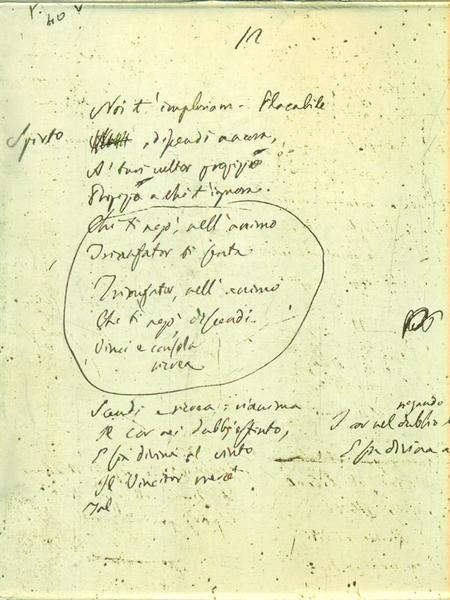 12
Noi t'imploriam. Placabile
Spirto , discendi ancora,
A' tuoi cultor propizio
Propizio a chi t'ignora.
Chi ti negò, nell'animo
Trionfator ti senta
Trionfator, nell'animo
Che ti negò discendi.
Vinci e consola
ricrea
Scendi e ricrea: rianima
Il cor nei dubbj estinto,
E sia divina al vinto
Il Vincitor mercè
Tal
I cor nel dubbio
E sia divina a